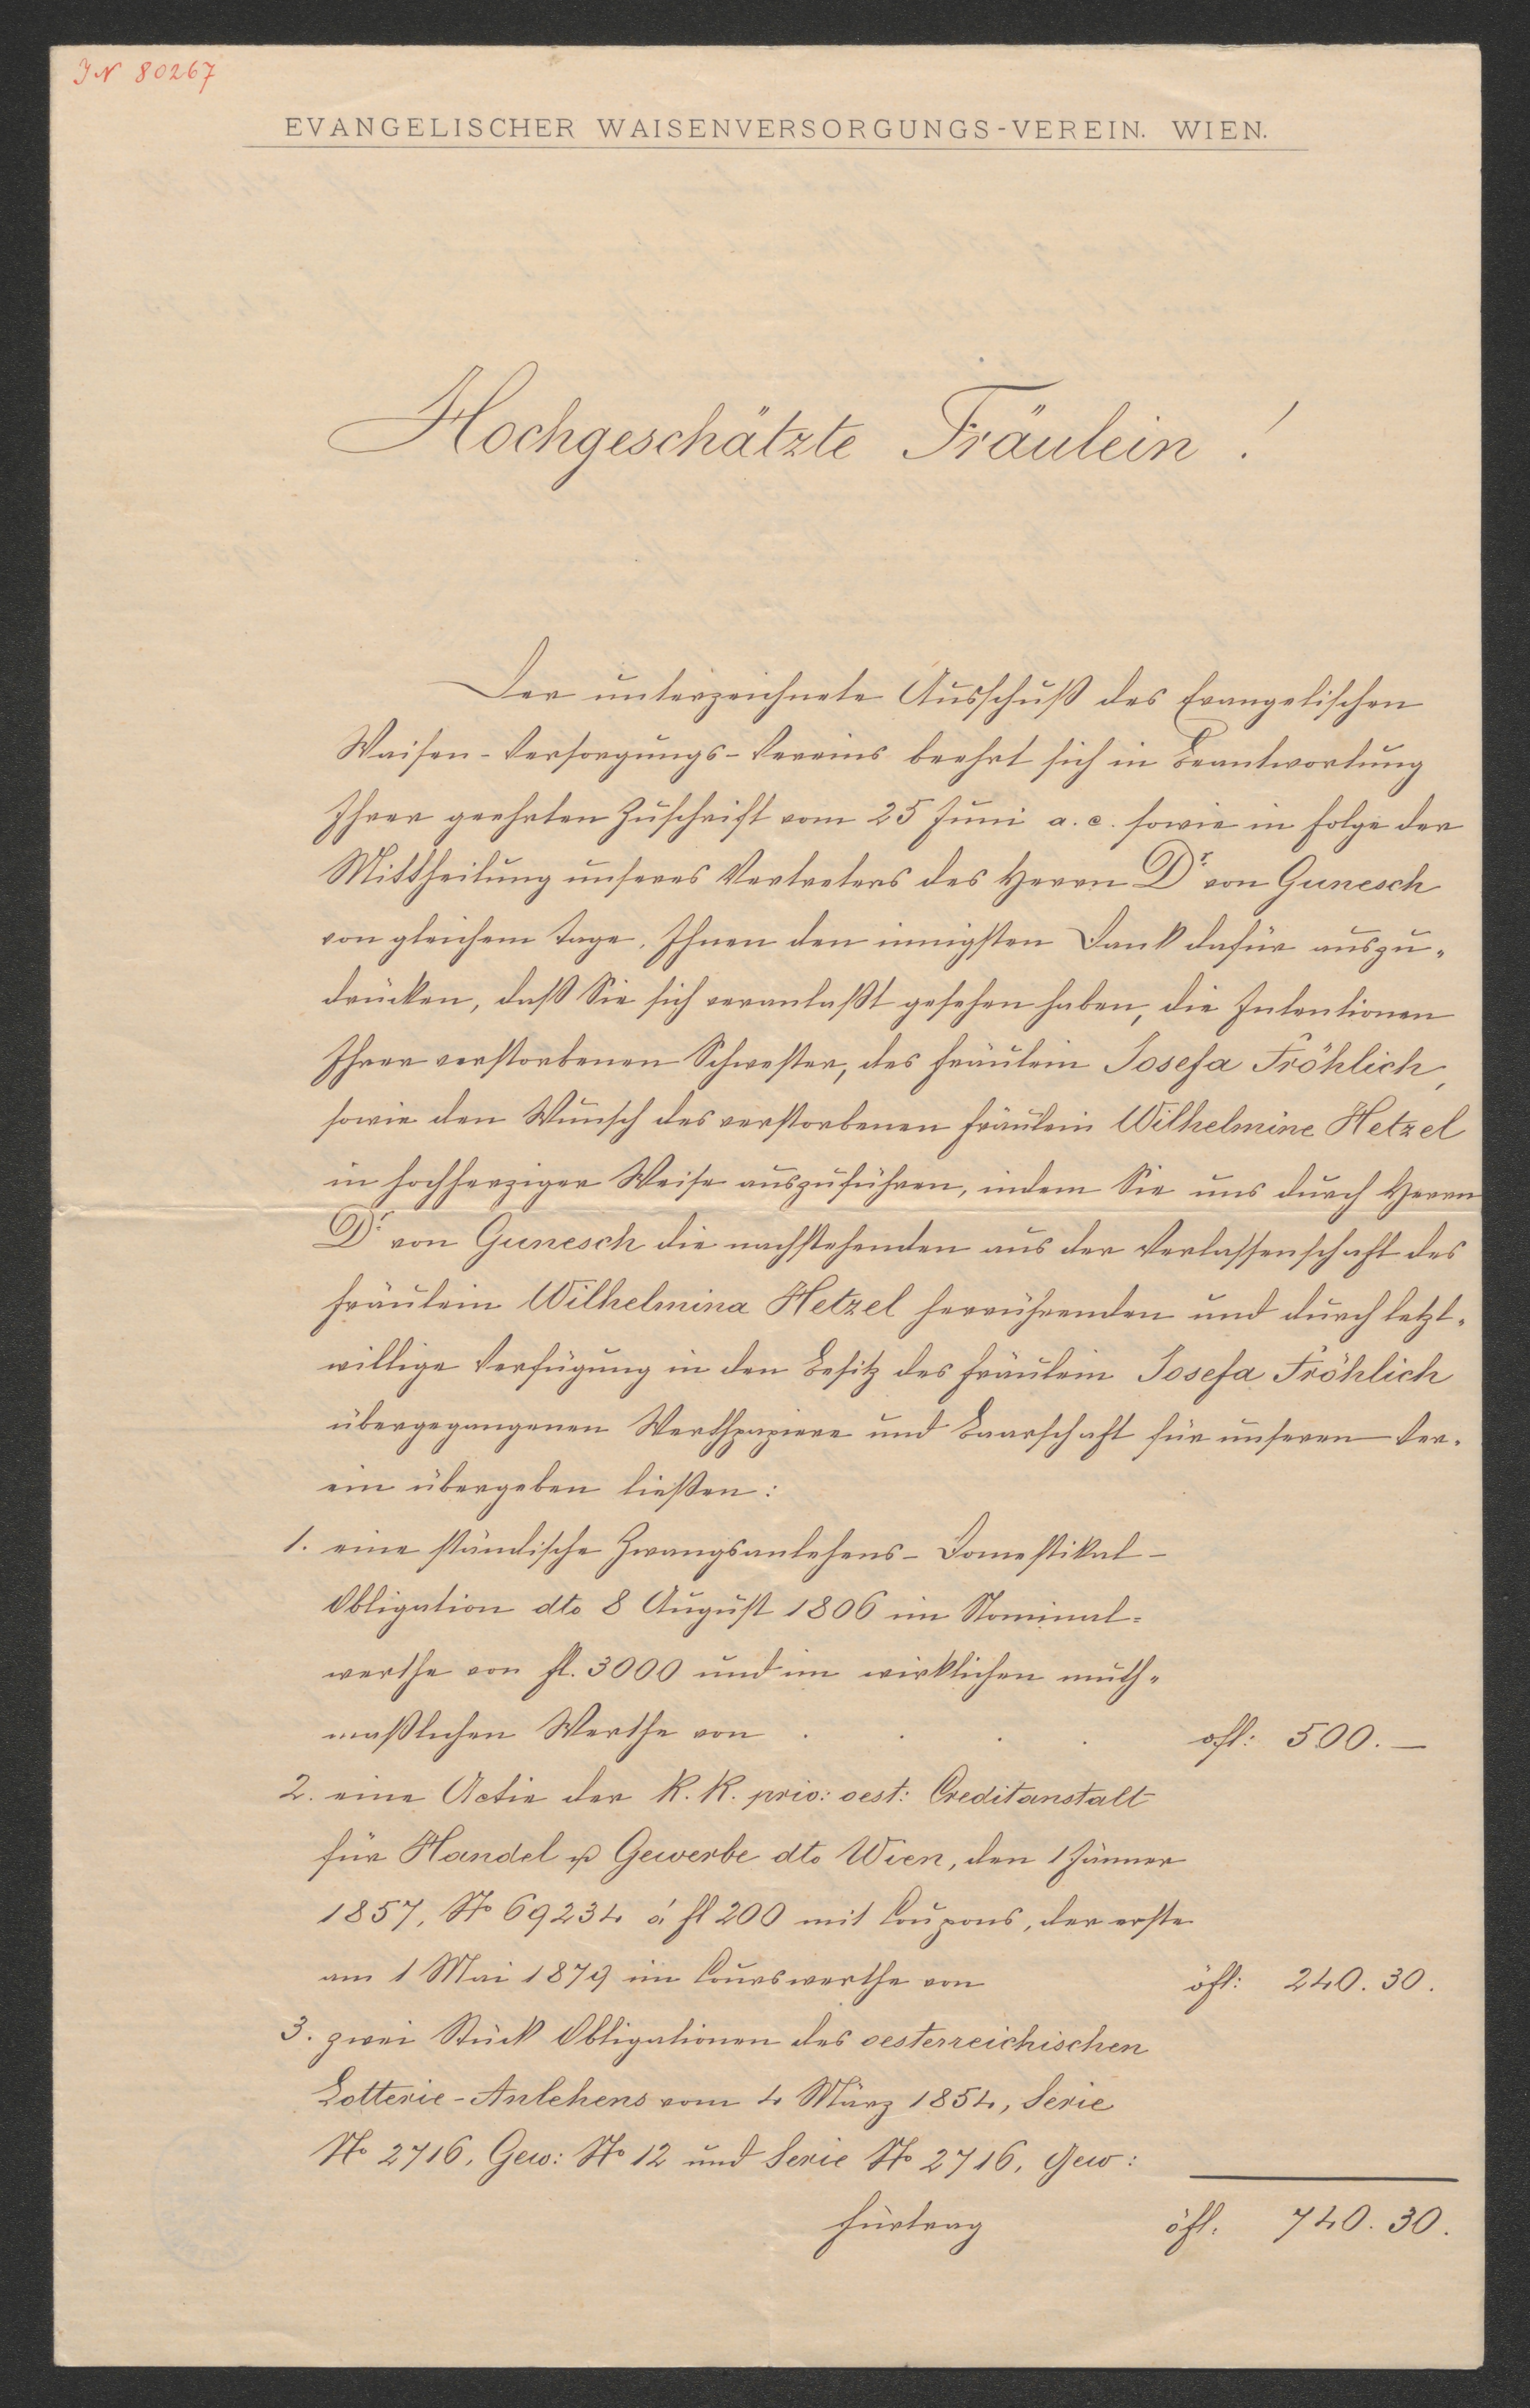 IN 80267
EVANGELISCHER WAISENVERSORGUNGS-VEREIN. WIEN.
Hochgeschätzte Fräulein!
Der unterzeichnete Ausschuß des Evangelischen
Waisen-Versorgungs-Vereins beehrt sich in Beantwortung
Ihrer geehrten Zuschrift vom 25 Juni a. c. sowie in Folge der
Mittheilung unseres Vertreters des Herrn Dr. von Gunesch
von gleichem Tage, Ihnen den innigsten Dank dafür auszu-
drücken, daß Sie sich veranlaßt gesehen haben, die Intentionen
Ihrer verstorbenen Schwester, des Fräulein Josefa Fröhlich,
sowie den Wunsch des verstorbenen Fräulein Wilhelmine Hetzel
in hochherziger Weise auszuführen, indem Sie uns durch Herrn
Dr. von Gunesch die nachstehenden aus der Verlassenschaft des
Fräulein Wilhelmina Hetzel herrührenden und durch letzt-
willige Verfügung in den Besitz des Fräulein Josefa Fröhlich
übergegangenen Werthpapiere und Baarschaft für unseren Ver-
ein übergeben ließen:
1. eine ständische Zwangsanlehens-Domestikal-
Obligation dto 8 August 1806 im Nominal-
werthe von fl. 3000 und im wirklichen muth-
maßlichen Werthe von . . . . öfl: 500.—
2. eine Actie der K. K. priv: oest: Creditanstalt
für Handel u Gewerbe dto Wien, den 1 Jänner
1857, No 69234 á fl 200 mit Coupons, der erste
am 1 Mai 1879 im Courswerthe von öfl: 240.30.
3. zwei Stück Obligationen des oesterreichischen
Lotterie-Anlehens vom 4 März 1854, Serie
No 2716, Gew: No 12 und Serie No 2716, Gew:
Fürtrag öfl. 740.30.